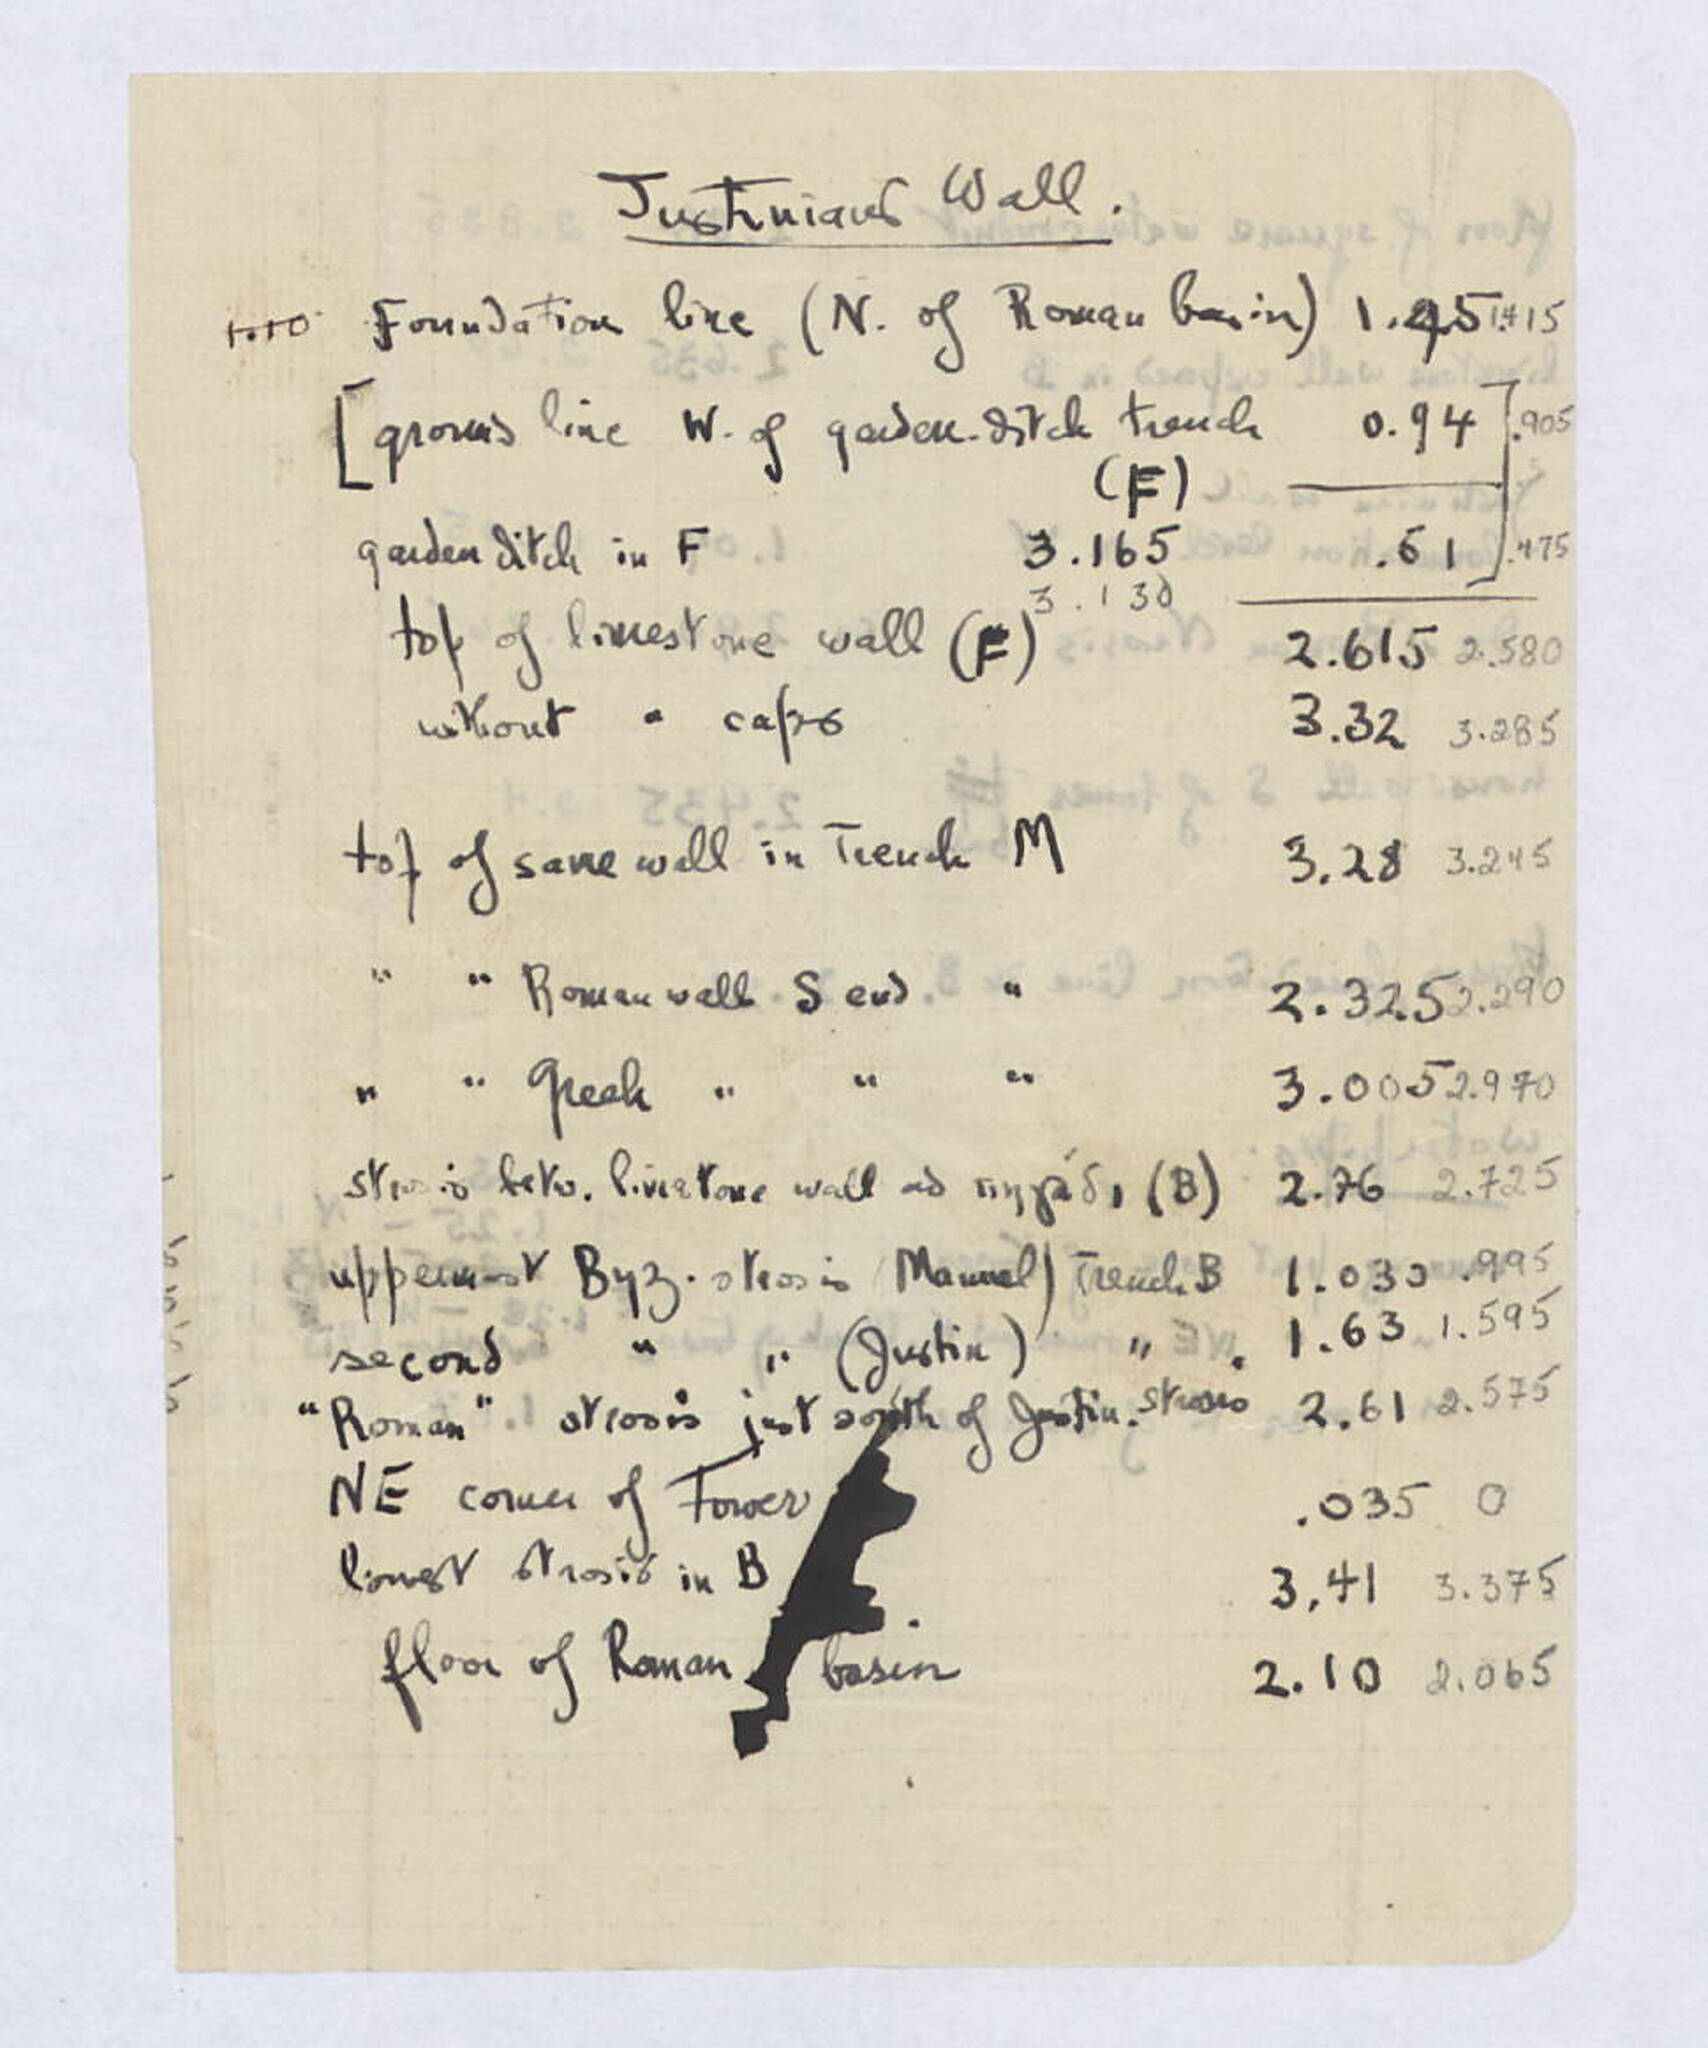 Justinians Wall.
1.10 Foundation line (N. of Roman basin) 1.45 1.415
[ground line W. of garden-ditch trench 0.94] .905
(F)
garden ditch in F 3.165 .51 .475
3.130
top of limestone wall (F) 2.615 2.580
without " caps 3.32 3.285
top of same wall in Trench M 3.28 3.245
" " Roman wall S end " 2.325 2.290
" " Greek " " " 3.005 2.970
strosis betw. limestone wall and πηγάδι (B) 2.76 2.725
uppermost Byz. strosis (Manuel) Trench B 1.030 .995
second " " (Justin) " " 1.63 1.595
"Roman" strosis just south of Justin. strosis 2.61 2.575
NE corner of Tower .035 0
lowest strosis in B 3.41 3.375
floor of Roman basin 2.10 2.065